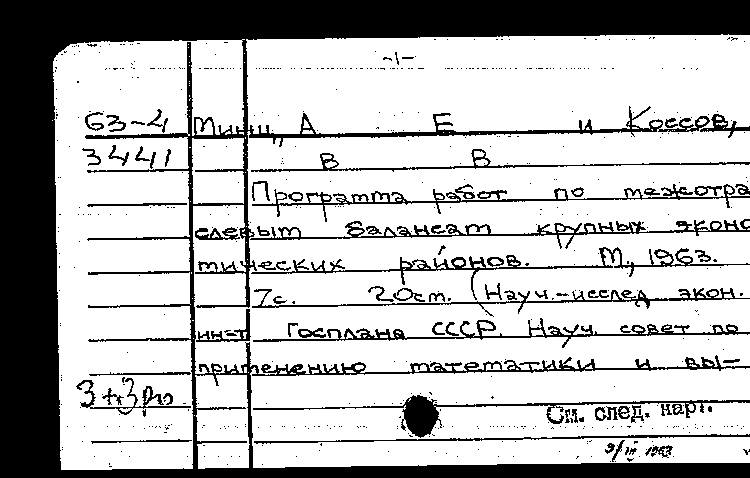 -1-
63-4 Минц, А Е и Коссов,
3441 В В
Программа работ по межотра
слевым балансам крупных эконо
мических районов. М., 1963.
7с. 20см. (Науч.-исслед экон.
ин-т Госплана СССР. Науч. совет по
применению математики и вы-
См. след. карт.
9/III 1963